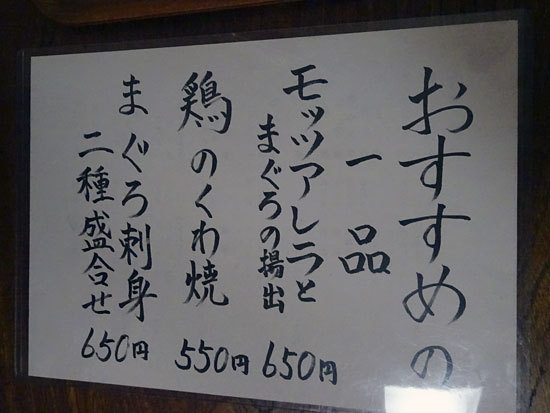 おすすめの
一品
モッツアレラと
まぐろの揚出
650円
鶏のくわ焼
550円
まぐろ刺身
二種盛合せ
650円